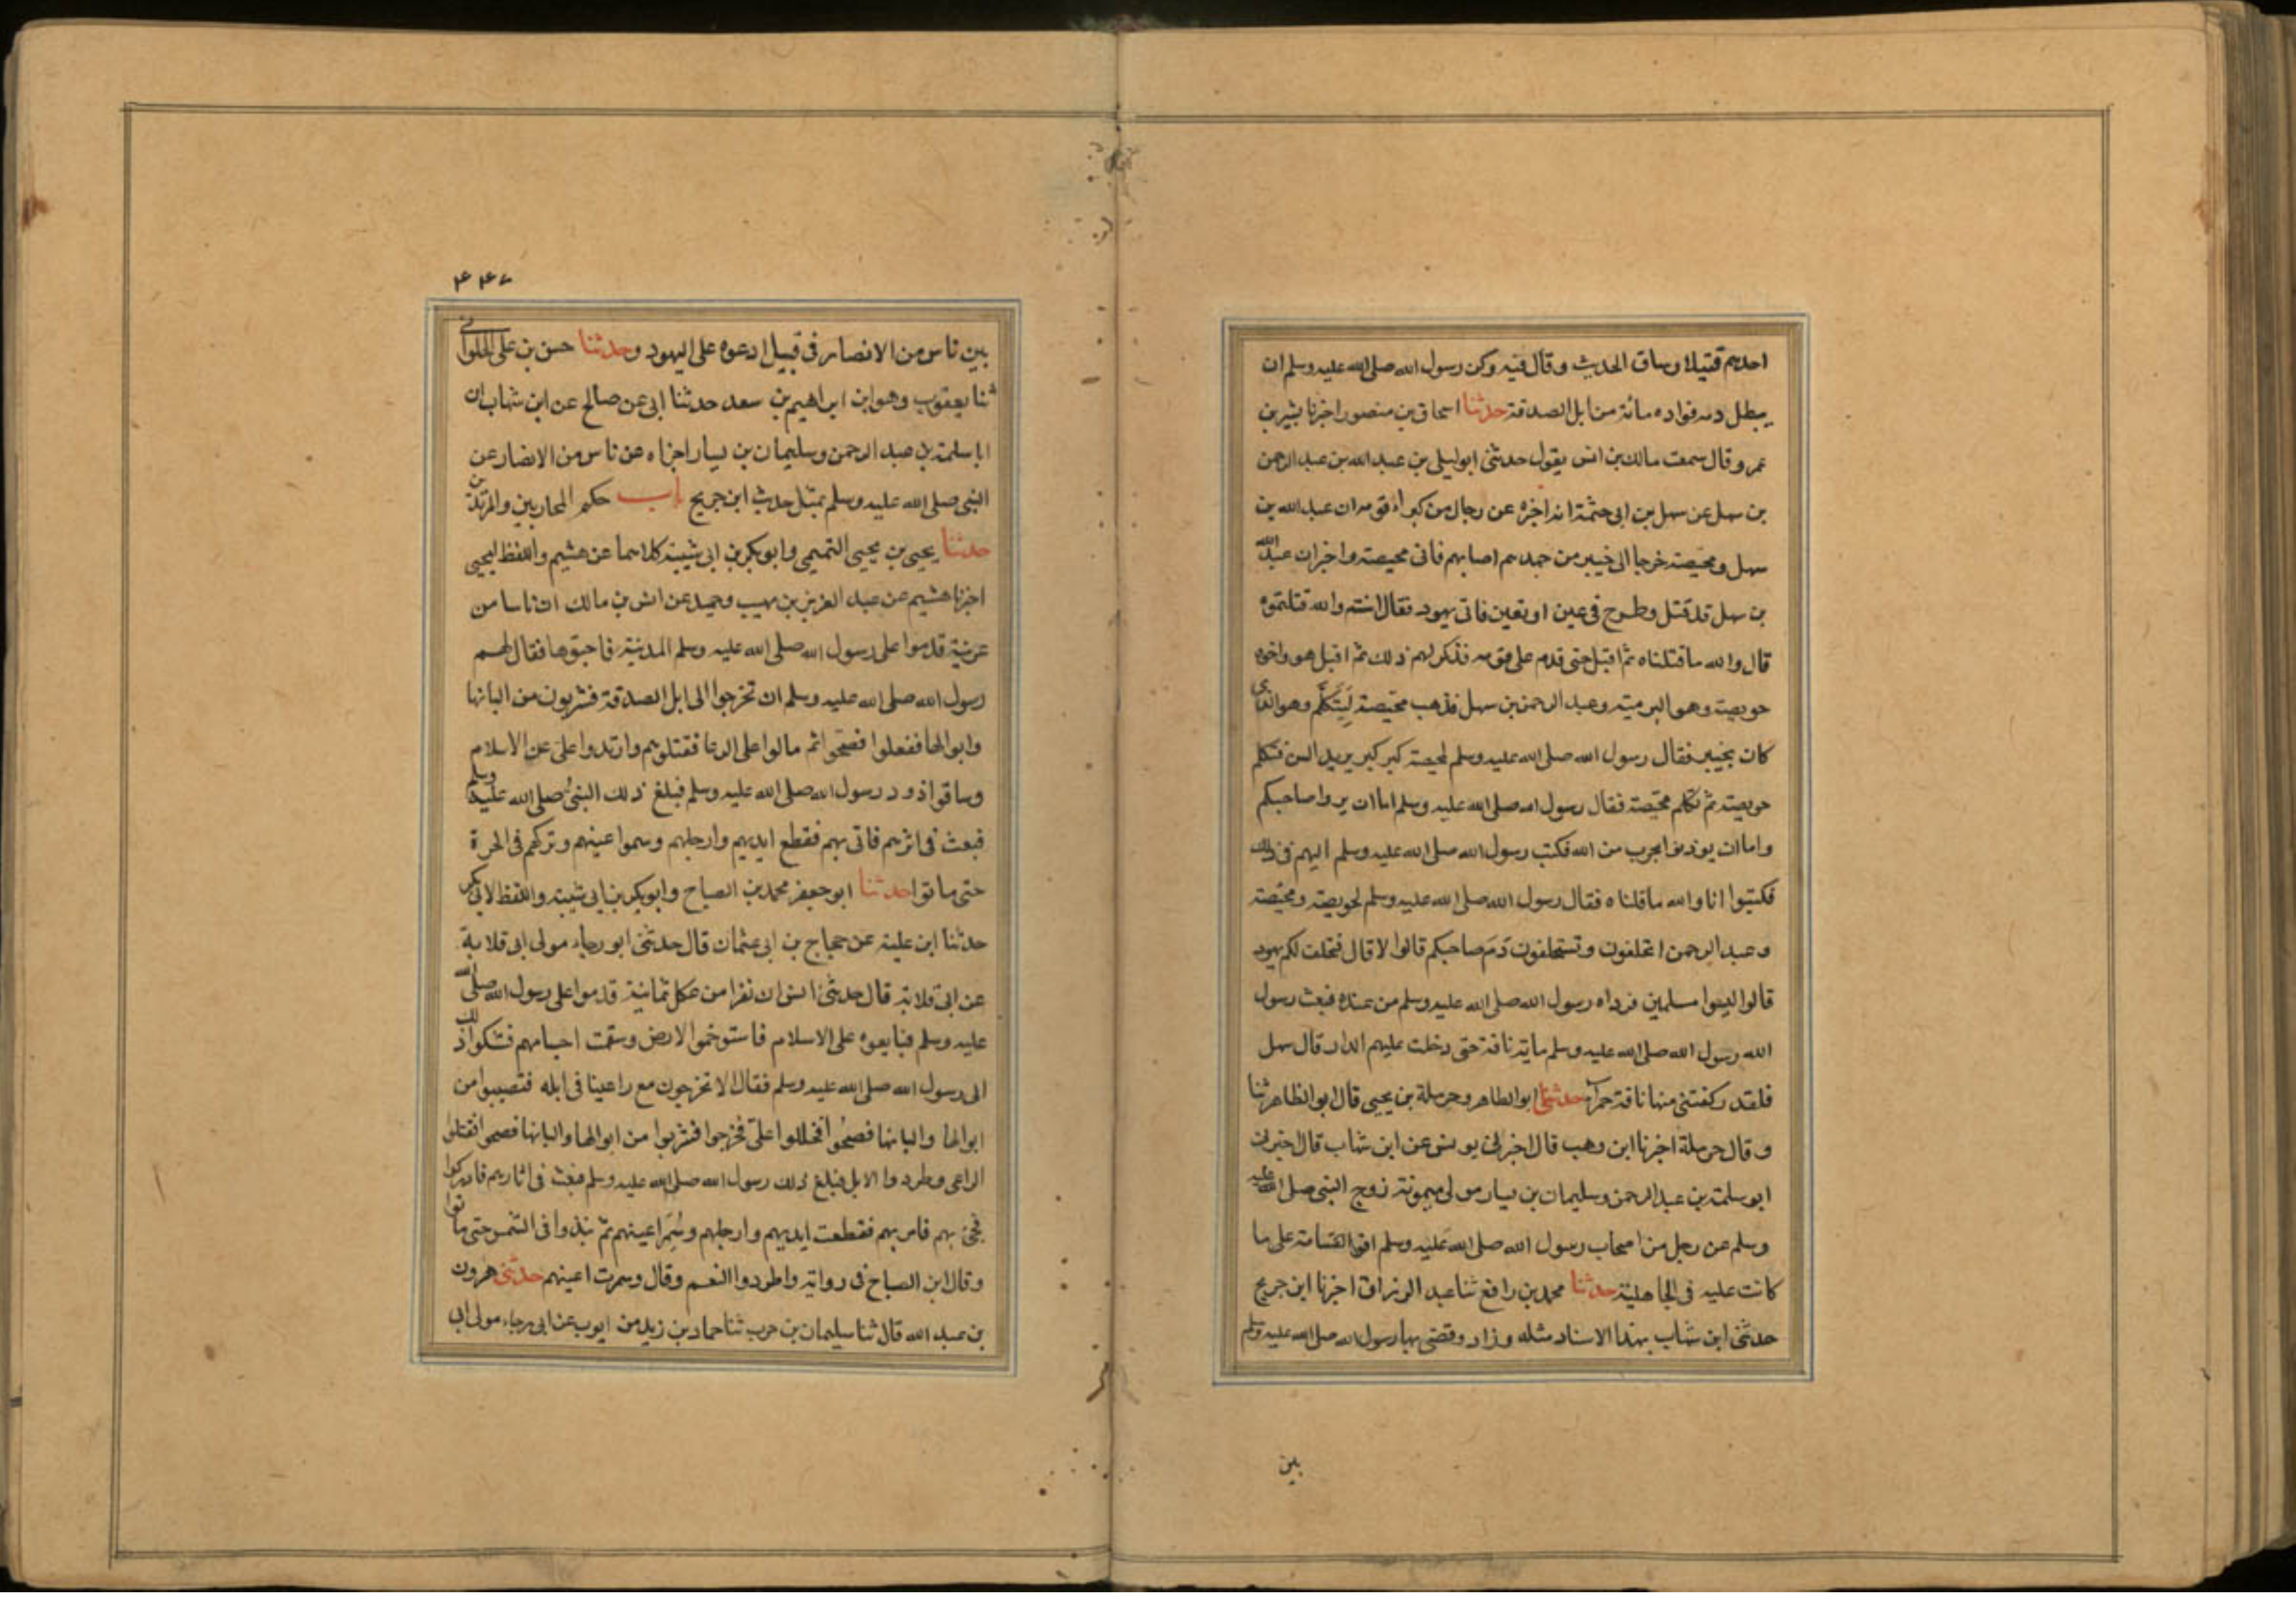 احدهم قتيلا وساق الحديث وقال فيه وكره رسول الله صلى الله عليه وسلم ان
يبطل دمه فواده مائة من ابل الصدقة حدثنا اسحاق بن منصور اخبرنا بشر بن
عمر وقال سمعت مالك بن انس يقول حدثنى ابو ليلى بن عبد الله بن عبد الرحمن
بن سهل عن سهل بن ابى حثمة انه اخبره عن رجال من كبراء قومه ان عبد الله بن
سهل ومحيصة خرجا الى خيبر من جهد هم اصابهم فاتى محيصة واخبر ان عبد الله
بن سهل قد قتل وطرح فى عين او فاتى يهود فقال انتم والله قتلتموه
قال والله ما قتلناه ثم اقبل حتى قدم على قومه فذكر لهم ذلك ثم اقبل هو واخوه
حويصة وهو وعبد الرحمن بن سهل فذهب محيصة ليتكلم وهو الذى
كان بخيبر فقال رسول الله صلى الله عليه وسلم لمحيصة كبر كبر يريد السن فتكلم
حويصة ثم تكلم محيصة فقال رسول الله صلى الله عليه وسلم اما ان يدوا صاحبكم
واما ان يوذنوا بحرب من الله فكتب رسول الله صلى الله عليه وسلم اليهم فى ذلك
فكتبوا انا والله ما قتلناه فقال رسول الله صلى الله عليه وسلم لحويصة ومحيصة
وعبد الرحمن اتحلفون وتستحلفون دم صاحبكم قالوا لا قال فتحلف لكم يهود
قالوا ليسوا مسلمين فوداه رسول الله صلى الله عليه وسلم من عنده فبعث رسول
الله رسول الله صلى الله عليه وسلم ماية ناقة حتى دخلت عليهم الدار قال سهل
فلقد ركضتنى منها ناقة حمراء حدثنا ابو الطاهر وحرملة بن يحيى قال ابو الطاهر ثنا
وقال حرملة اخبرنا ابن وهب قال اخبرنى يونس عن ابن شهاب قال اخبرنى
ابو سلمة بن عبد الرحمن وسليمان بن يسار مولى ميمونة زوج النبى صلى الله عليه
وسلم عن رجل من اصحاب رسول الله صلى الله عليه وسلم اقر القسامة على ما
كانت عليه فى الجاهلية حدثنا محمد بن رافع ثنا عبد الرزاق اخبرنا ابن جريج
حدثنى ابن شهاب بهذا الاسناد مثله وزاد وقضى بها رسول الله صلى الله عليه وسلم
بين
بين ناس من الانصار فى قتيل ادعوه على اليهود وحدثنا حسن بن على الحلوانى
ثنا يعقوب وهو ابن ابراهيم بن سعد حدثنا ابى عن صالح عن ابن شهاب ان
ابا سلمة بن عبد الرحمن وسليمان بن يسار اخبراه عن ناس من الانصار عن
النبى صلى الله عليه وسلم بمثل حديث ابن جريج باب حكم المحاربين والمرتدين
حدثنا يحيى بن يحيى التميمى وابو بكر بن ابى شيبة كلاهما عن هشيم واللفظ ليحيى
اخبرنا هشيم عن عبد العزيز بن صهيب وحميد عن انس بن مالك ان ناسا من
عرينة قدموا على رسول الله صلى الله عليه وسلم المدينة فاجتووها فقال لهم
رسول الله صلى الله عليه وسلم ان تخرجوا الى ابل الصدقة فتشربون من البانها
وابوالها ففعلوا فصحوا ثم مالوا على الرعا فقتلوهم وارتدوا على عن الاسلام
وساقوا ذود رسول الله صلى الله عليه وسلم فبلغ ذلك النبى صلى الله عليه وسلم
فبعث فى اثرهم فاتى بهم فقطع ايديهم وارجلهم وسموا عينهم وتركهم فى الحرة
حتى ماتوا حدثنا ابو جعفر محمد بن الصباح وابو بكر بن ابى شيبة واللفظ لابى بكر
حدثنا ابن علية عن حجاج بن ابى عثمان قال حدثنى ابو رجاء مولى ابى قلابة
عن ابى قلابة قال حدثنى انس ان نفرا من عكل ثمانية قدموا على رسول الله صلى الله
عليه وسلم فبايعوه على الاسلام فاستوخموا الارض وسقمت اجسامهم فشكوا ذلك
الى رسول الله صلى الله عليه وسلم فقال الا تخرجون مع راعينا فى ابله فتصيبوا من
ابوالها والبانها فصحوا فخرجوا فشربوا من ابوالها والبانها فصحوا فقتلوا
الراعى وطردوا الابل فبلغ ذلك رسول الله صلى الله عليه وسلم فبعث فى اثارهم فادركوا
فجئ بهم فامر بهم فقطعت ايديهم وارجلهم وسمر اعينهم ثم نبذوا فى الشمس حتى ماتوا
وقال ابن الصباح فى روايته واطردوا النعم وقال وسمرت اعينهم حدثنى هرون
بن عبد الله قال ثنا سليمان بن حرب ثنا حماد بن زيد من ايوب عن ابى رجاء مولى ابى